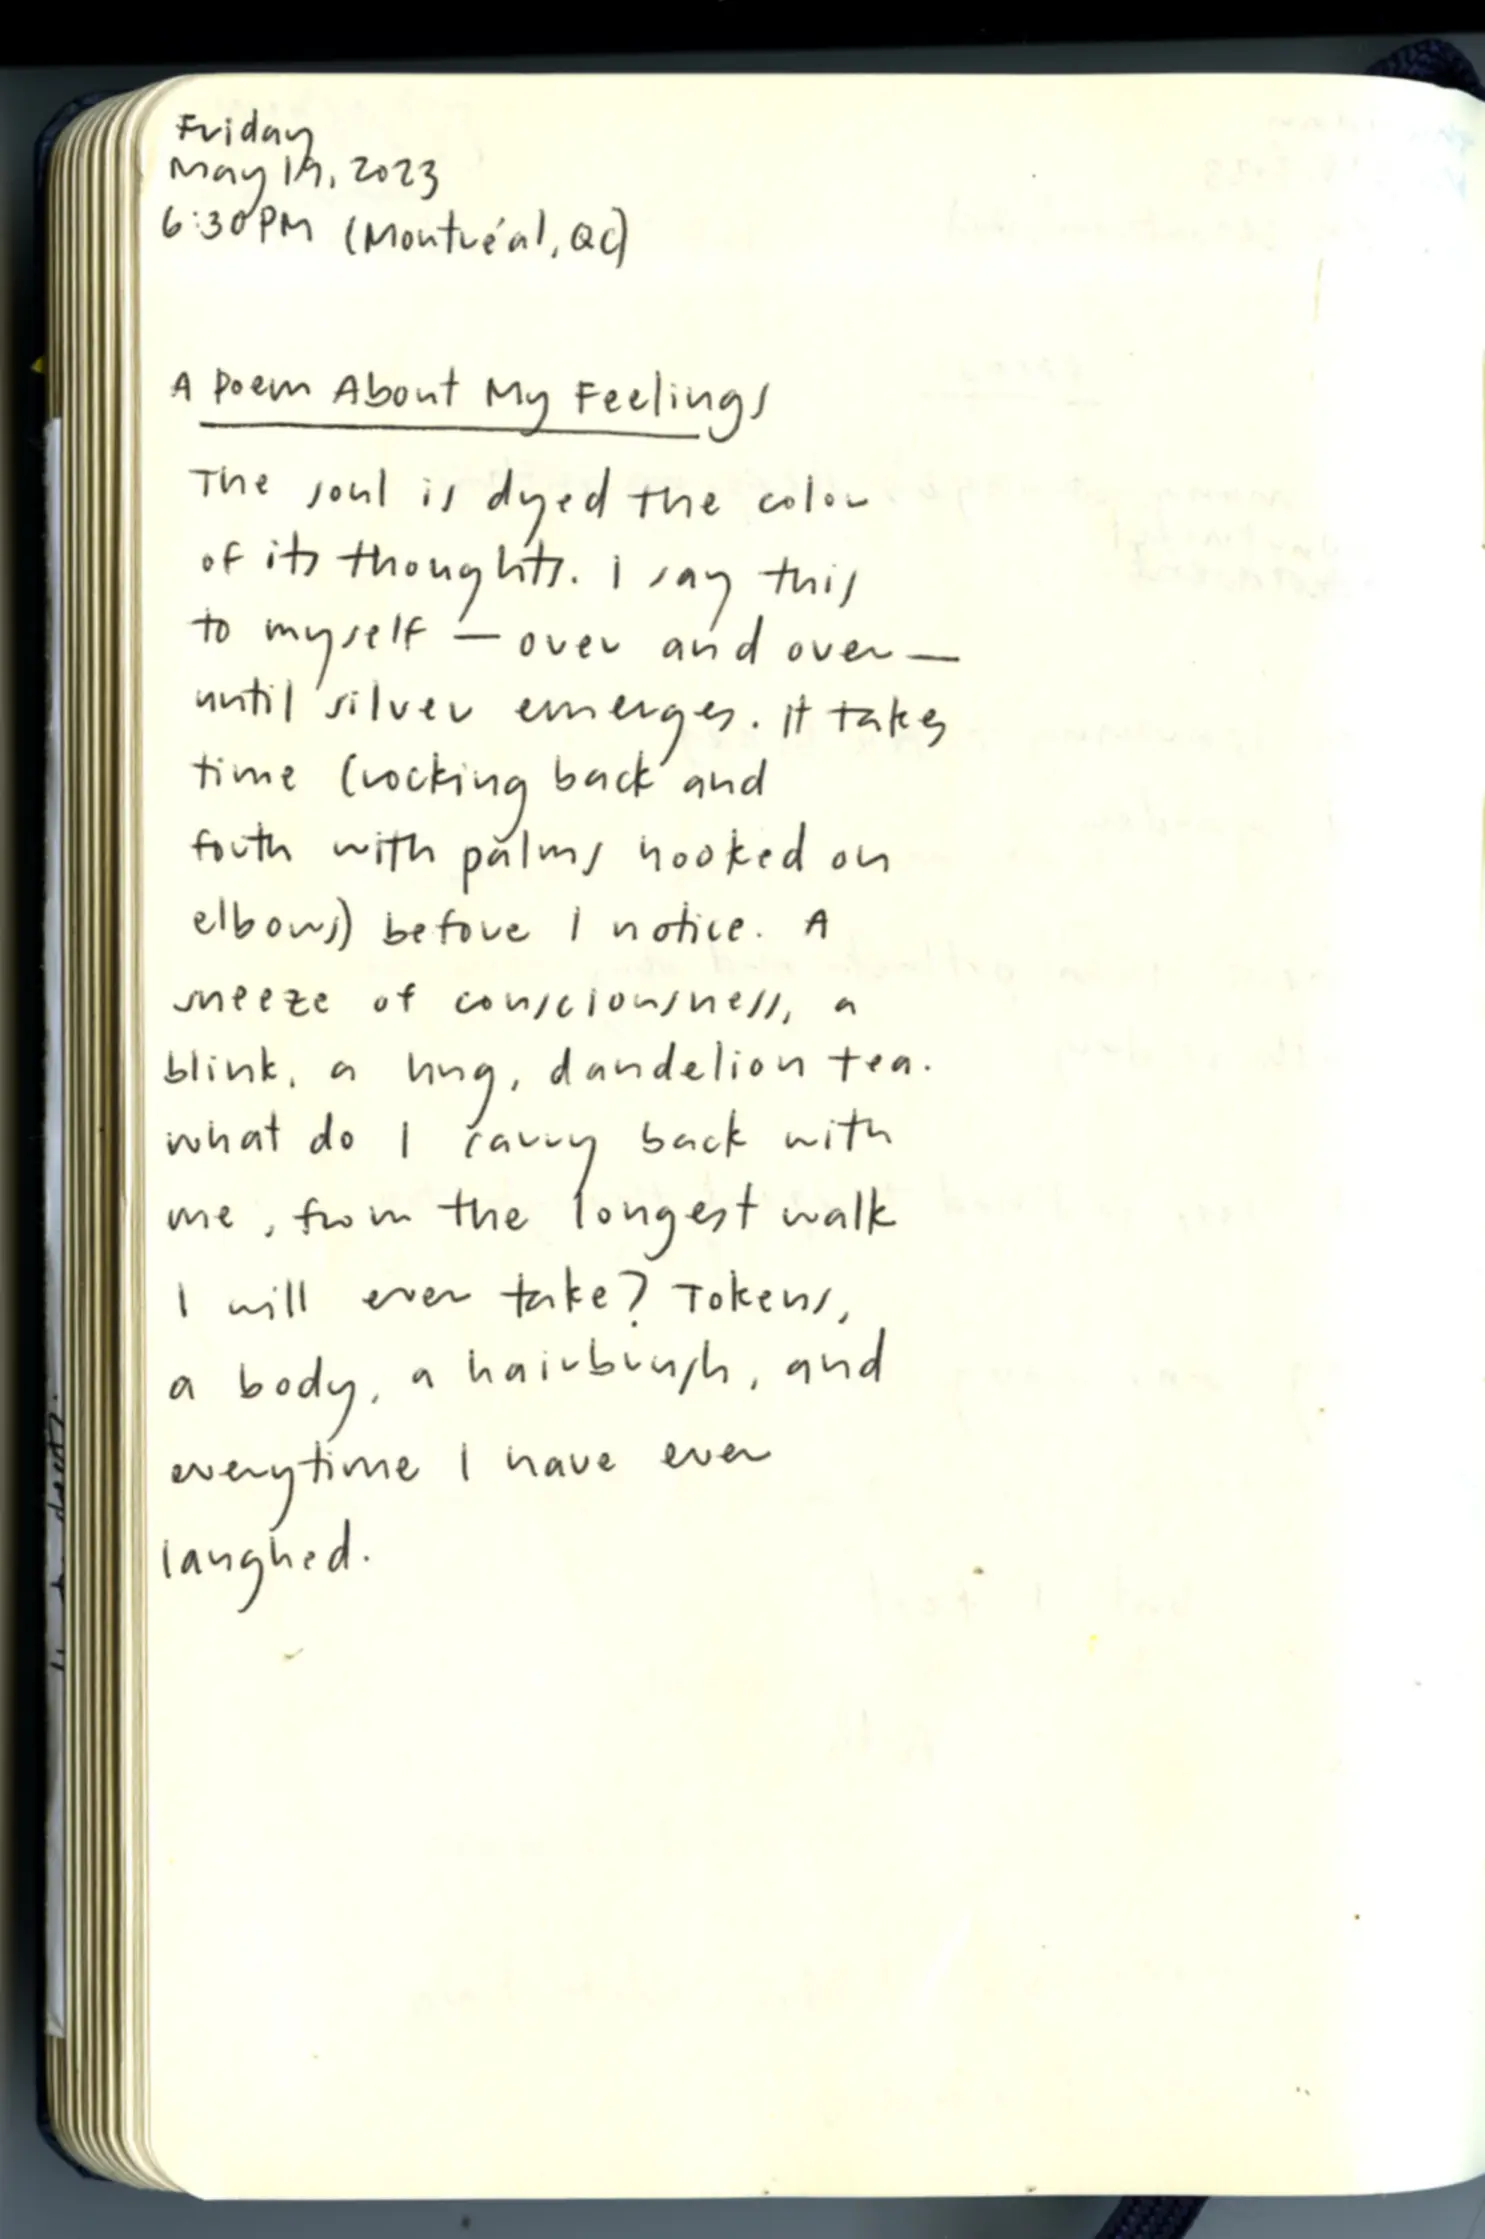 Friday
May 19, 2023
6:30PM (Montréal, QC)
A Poem About My Feelings
The soul is dyed the color
of its thoughts. I say this
to myself — over and over —
until silver emerges. It takes
time (rocking back and
forth with palms hooked on
elbows) before I notice. A
sneeze of consciousness, a
blink, a hug, dandelion tea.
What do I carry back with
me, from the longest walk
I will ever take? Tokens,
a body, a hairbrush, and
everytime I have ever
laughed.